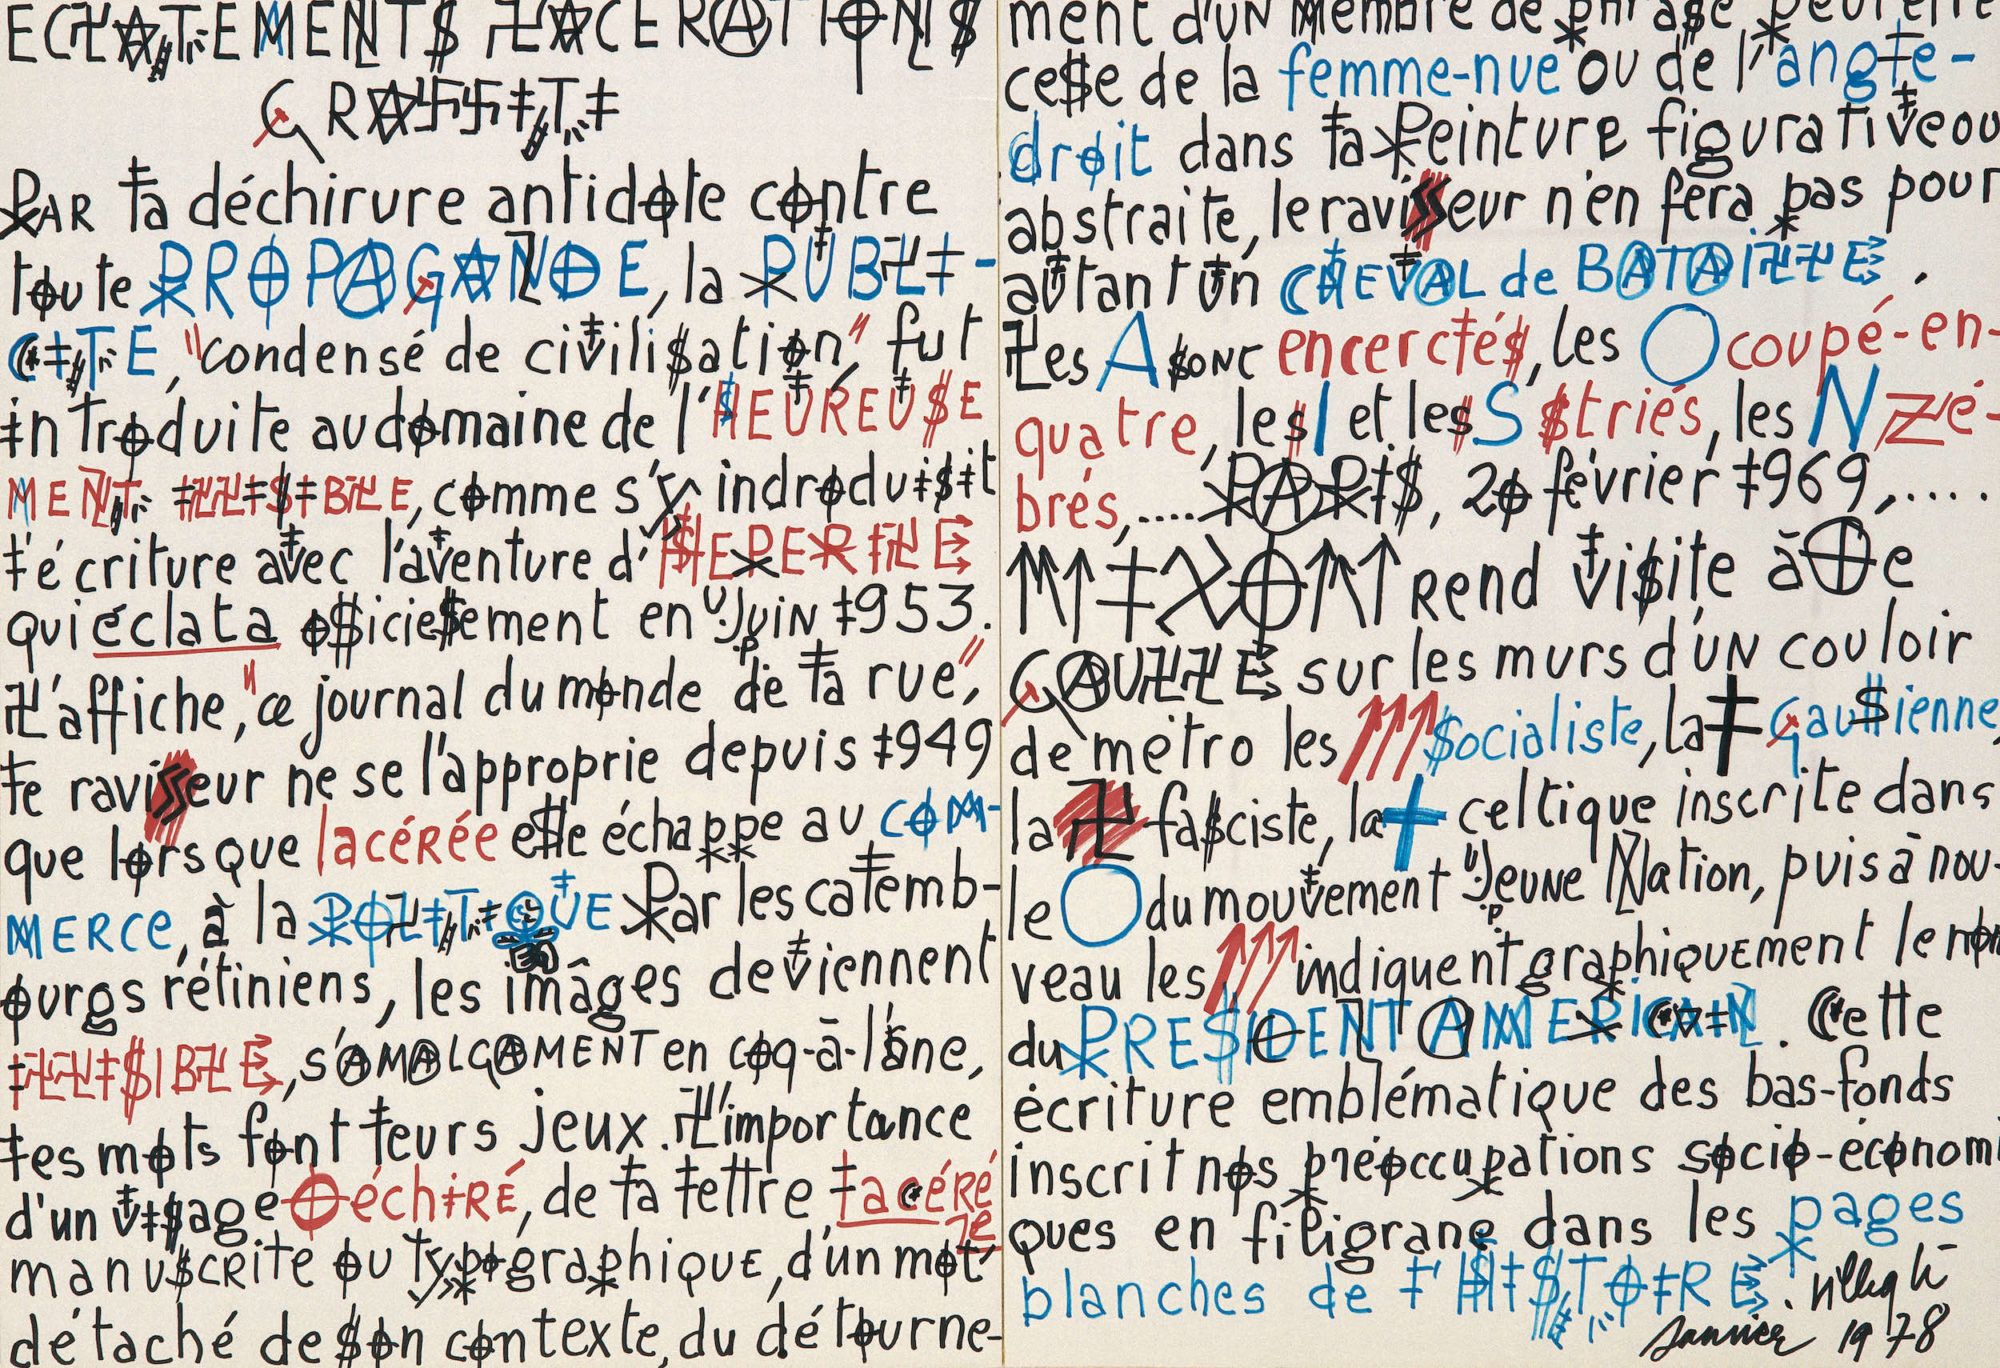 ECLATEMENTS LACERATIONS
GRASSITE
PAR la déchirure antidote contre
toute PROPAGANDE, la PUBLI-
CITE, "condensé de civilisation", fut
introduite au domaine de l'HEUREUSE
MENT ILLISIBLE, comme s'y indroduisit
l'écriture avec l'aventure d'HEPERILE
qui éclata officiellement en Juin 1953.
L'affiche, "ce journal du monde de la rue",
le ravisseur ne se l'approprie depuis 1949
que lorsque lacérée elle échappe au COM-
MERCE, à la POLITIQUE Par les calemb-
ourgs rétiniens, les imâges deviennent
ILLISIBLE, s'AMALGAMENT en coq-à-l'âne,
les mots font leurs jeux. L'importance
d'un visage DéchIRÉ, de la lettre lacéRé
manuscrite ou typographique, d'un mot
détaché de son contexte, du détourne-
ment d'un membre de phrase peut être
celle de la femme-nue ou de l'angle-
droit dans la Peinture figurative ou
abstraite, le ravisseur n'en fera pas pour
autant un CHEVAL de BATAILLE.
Les A sont encerclés, les O coupé-en-
quatre, les I et les S striés, les N zé-
brés,.... PARIS, 20 février 1969,.....
NIXON rend visite à De
GAULLE sur les murs d'UN couloir
de métro les ↑↑↑ socialiste, la ‡ Gaullienne,
la 卐 fasciste, la + celtique inscrite dans
le O du mouvement Jeune Nation, puis à nou-
veau les ↑↑↑ indiquent graphiquement le nom
du PRESIDENT AMERICAIN. Cette
écriture emblématique des bas-fonds
inscrit nos préoccupations socio-économi
ques en filigrane dans les pages
blanches de l'HISTOIRE. Villeglé
Janvier 1978